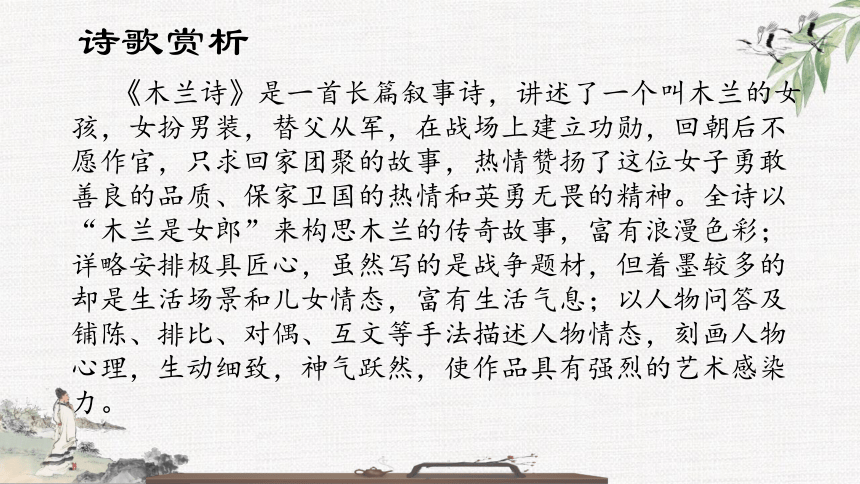 诗歌赏析
《木兰诗》是一首长篇叙事诗，讲述了一个叫木兰的女
孩，女扮男装，替父从军，在战场上建立功勋，回朝后不
愿作官，只求回家团聚的故事，热情赞扬了这位女子勇敢
善良的品质、保家卫国的热情和英勇无畏的精神。全诗以
“木兰是女郎”来构思木兰的传奇故事，富有浪漫色彩；
详略安排极具匠心，虽然写的是战争题材，但着墨较多的
却是生活场景和儿女情态，富有生活气息；以人物问答及
铺陈、排比、对偶、互文等手法描述人物情态，刻画人物
心理，生动细致，神气跃然，使作品具有强烈的艺术感染
力。